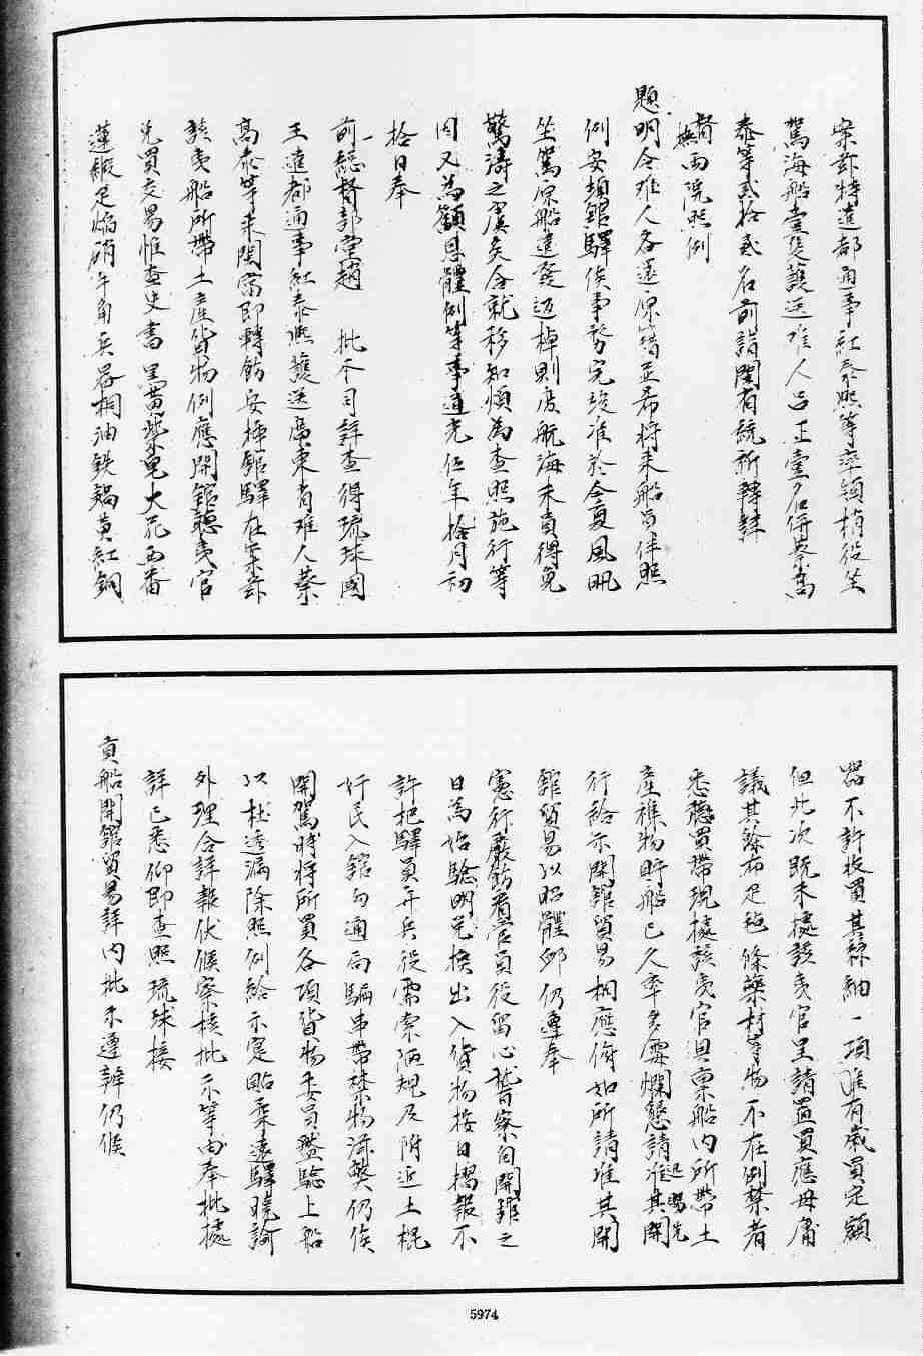 案茲特遣都通事紅泰熙等率領梢役坐
駕海船壹隻護送难人呂正壹名併蔡高
泰等貳拾貳名前詣閩省統祈轉詳
督撫兩院照例
題明令难人各還原籍並希将来船員伴照
例安頓館驛俟事務完竣准於今夏風帆
坐駕原船遣發迈棹則庶航海未貢得免
驚濤之虞矣合就移知煩為查照施行等
因又為籲恩體例等事道光伍年拾月初
拾日奉
前總督部堂趙 批本司詳查得琉球國
王遣都通事紅泰熙護送廣東省难人蔡
高泰等来閩當即轉飭安挿館驛在案茲
該夷船所帶土產貨物例應開館聽夷官
兌買交易惟查史書黑黄紫皂大花西番
蓮緞足焰硝牛角兵器桐油鉄鍋黄紅銅
器不許收買其絲紬一項雖有歳買定額
但此次既未據該夷官呈請置買應毋庸
議其餘布足毡條藥材等物不在例禁者
悉聽買帶現據該夷官具禀船内所帶土
產粗物貯船已久率多霉爛懇請迅賜先准其開
行給示開館貿易相應俯如所請准其開
館貿易以昭體卹仍遵奉
憲行嚴飭看管員役留心稽察自開館之
日為始驗明兌換出入貨物按日摺報不
許把驛員弁兵役需索陋規及附近土棍
奸民入館勾通局騙串帶禁物滋弊仍俟
開駕時将所買各項貨物委員盤驗上船
以杜透漏除照例給示寔貼柔遠驛曉諭
外理合詳報伏候察核批示等由奉批據
詳已悉仰即查照琉球接
貢船開館貿易詳内批示遵辦仍候
5974